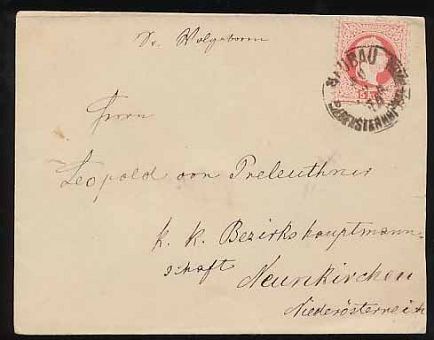 Sr. Wolgeboren
Herrn
Leopold von Preleuthner
k. k. Bezirkshauptmann-
schaft
Neunkirchen
Niederösterreich